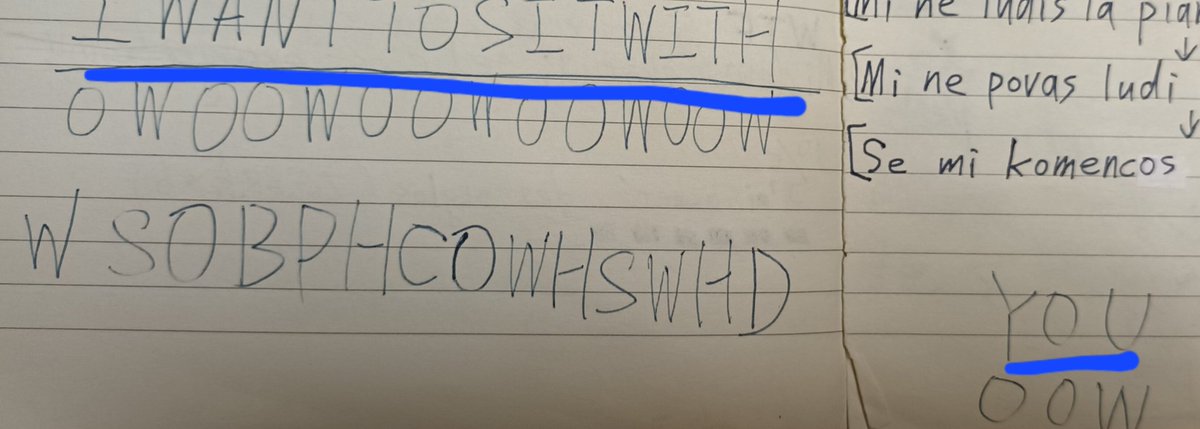 I WANT TO SITWITH
OWOOWOOWOOWOOW
WSOBPHCOWHSWHD
[Mi ne ludis la
↓
[Mi ne povas ludi
↓
[Se mi komencos
YOU
OOW